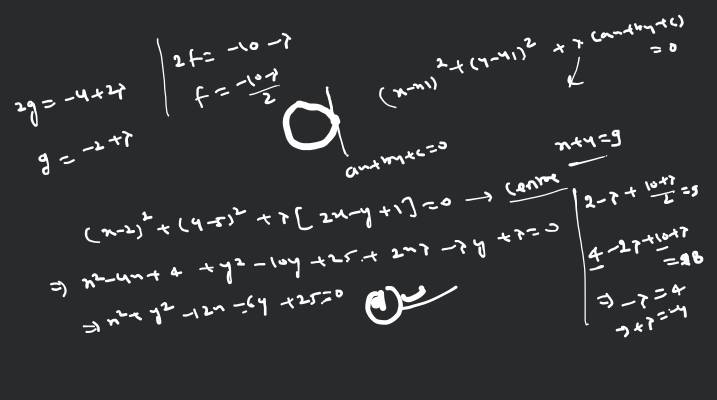 2g = -4+2λ
g = -2+λ
2f = -10-λ
f = (-10-λ)/2
(x-x1)² + (y-y1)² + λ(ax+by+c) = 0
ax+by+c=0
x+y=9
(x-2)² + (y-5)² + λ[2x-y+1] = 0 → Centre
⇒ x²-4x+4 + y²-10y+25 + 2xλ - λy + λ = 0
⇒ x²+y²-12x-6y+25=0
2-λ + (10+λ)/2 = 9
4-2λ+10+λ = 18
⇒ -λ = 4
→ λ = -4